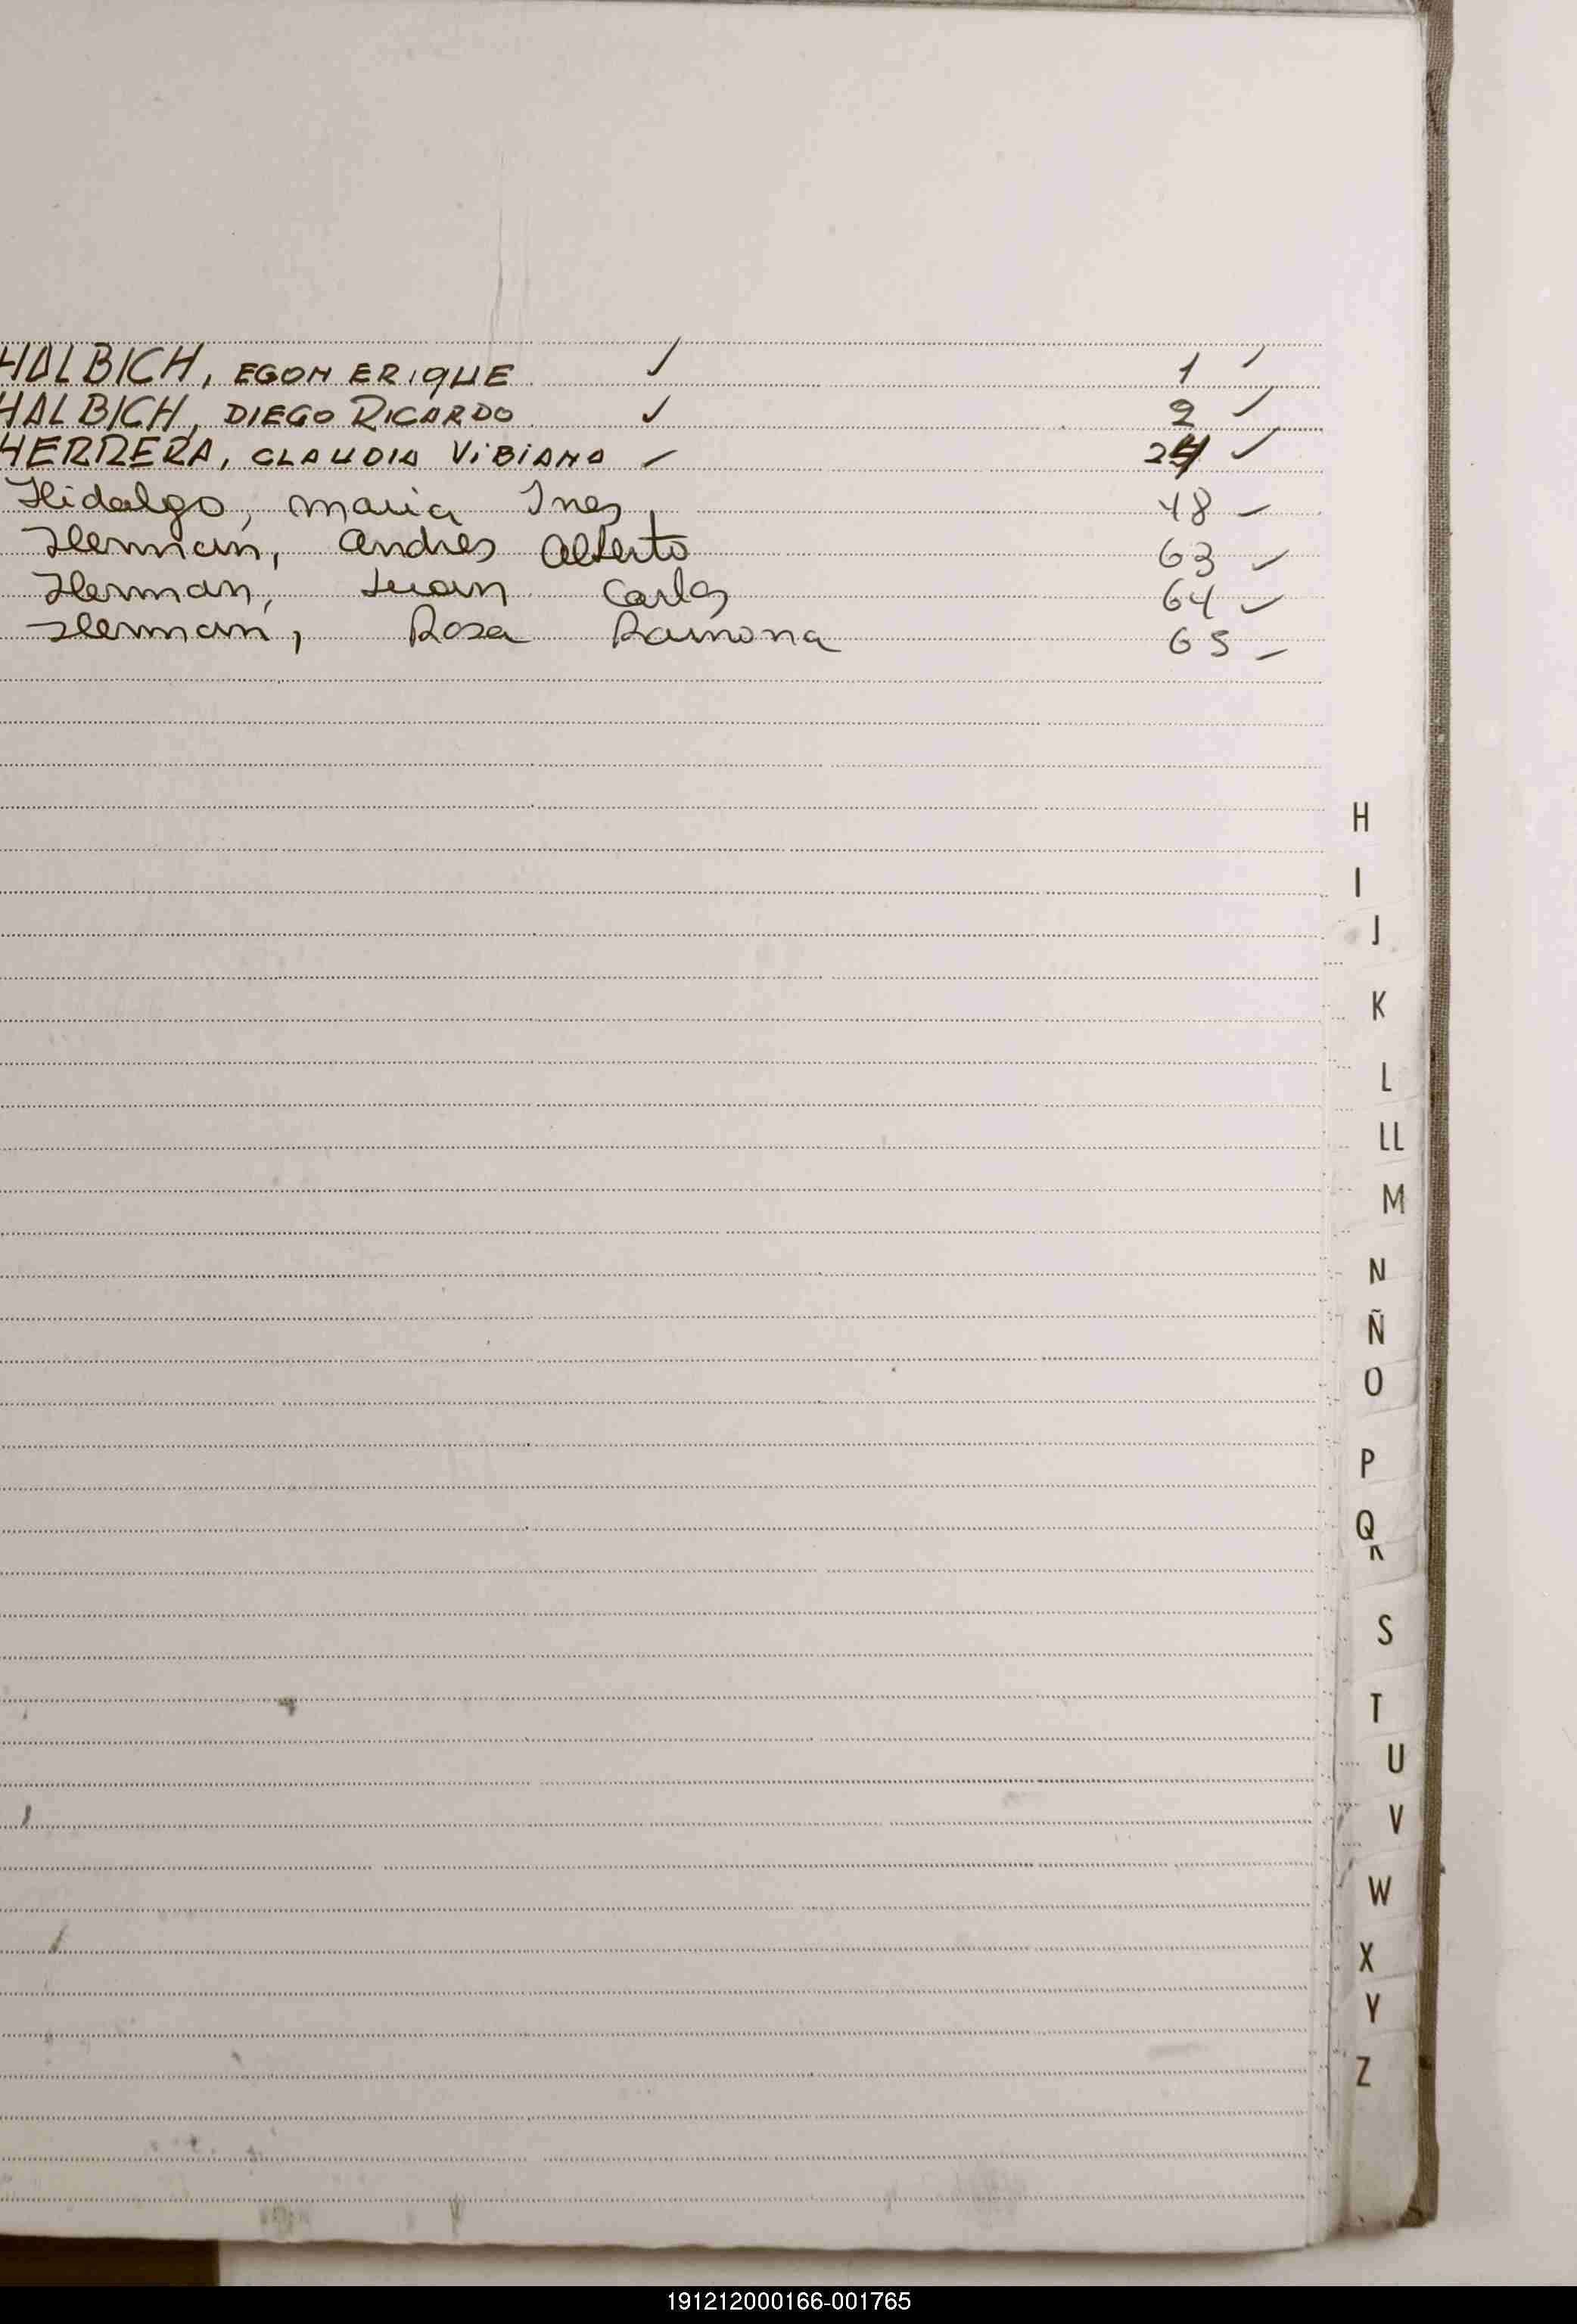 HALBICH, EGON ERIQUE ✓ 1 ✓
HALBICH, DIEGO RICARDO ✓ 2 ✓
HERRERA, CLAUDIA ViBiANA ✓ 24 ✓
Hidalgo, Maria Ines 48 ✓
Herman, Andres Alberto 63 ✓
Herman, Juan Carlos 64 ✓
Herman, Rosa Ramona 65 ✓
H
I
J
K
L
LL
M
N
Ñ
O
P
Q
R
S
T
U
V
W
X
Y
Z
191212000166-001765